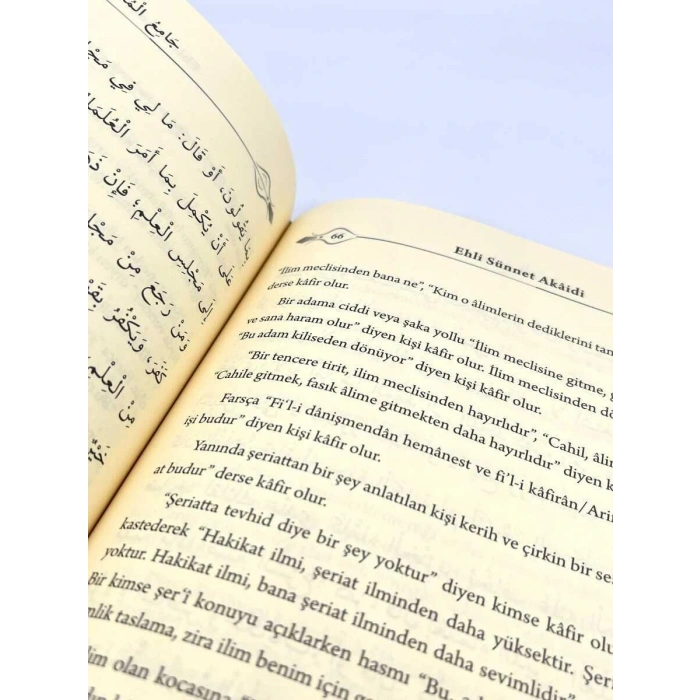 جَامِعُ
أَوْ قَالَ: مَا لِي فِي
عَلَى أَنْ يُكْمِلَ بِمَا أَمَرَ
إِلَى مَجْلِسِ الْعِلْمِ؛ فَإِنْ
وَمَنْ رَجَعَ مِنْ
كَفَرَ، وَيَكْفُرُ
مِنَ الْعِلْمِ
66
Ehli Sünnet Akâidi
"İlim meclisinden bana ne", "Kim o âlimlerin dediklerini
derse kâfir olur.
Bir adama ciddi veya şaka yollu "İlim meclisine gitme,
ve sana haram olur" diyen kişi kâfir olur. İlim meclisinden
"Bu adam kiliseden dönüyor" diyen kişi kâfir olur.
"Bir tencere tirit, ilim meclisinden hayırlıdır", "Cahil,
"Cahile gitmek, fasık âlime gitmekten daha hayırlıdır" diyen
Farsça "Fi'l-i dânişmendân hemânest ve fi'l-i kâfirân/
işi budur" diyen kişi kâfir olur.
Yanında şeriattan bir şey anlatılan kişi kerih ve çirkin bir
at budur" derse kâfir olur.
"Şeriatta tevhid diye bir şey yoktur" diyen kimse kâfir
kastederek "Hakikat ilmi, şeriat ilminden daha yüksektir.
yoktur. Hakikat ilmi, bana şeriat ilminden daha sevimlidir"
Bir kimse şer'î konuyu açıklarken hasmı "Bu,
taslama, zira ilim benim için
olan kocasına